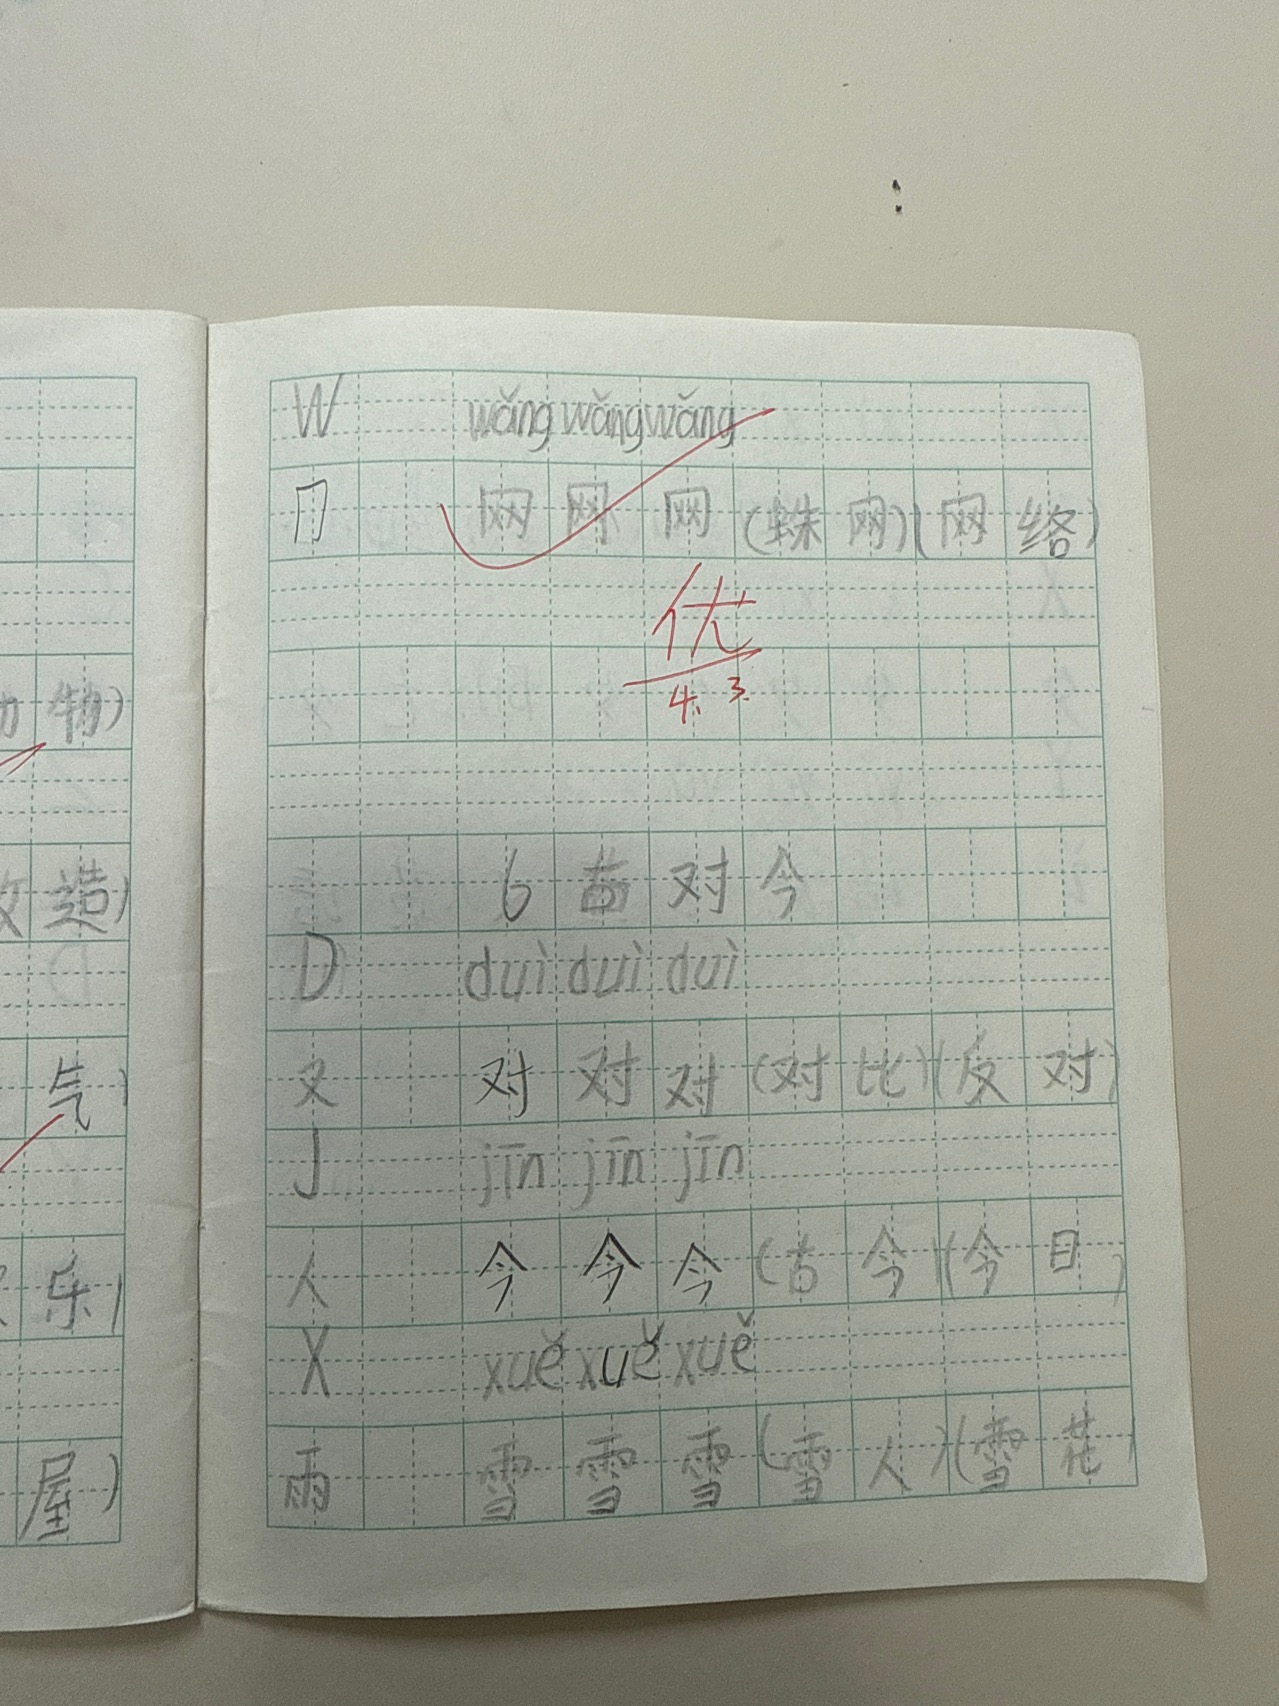 W wǎng wǎng wǎng
冂 网 网 网 (蛛 网) (网 络)
优
4.3.
物)
6 古 对 今
造)
D duì duì duì
气)
又 对 对 对 (对 比) (反 对)
J jīn jīn jīn
乐)
人 今 今 今 (古 今) (今 日)
X xuě xuě xuě
屋)
雨 雪 雪 雪 (雪 人) (雪 花)